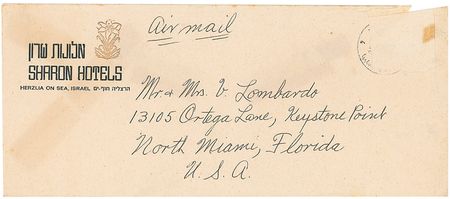 Air mail
מלונות שרון
SHARON HOTELS
HERZLIA ON SEA, ISRAEL הרצליה חוף-ים
Mr & Mrs. V. Lombardo
13105 Ortega Lane, Keystone Point
North Miami, Florida
U. S. A.